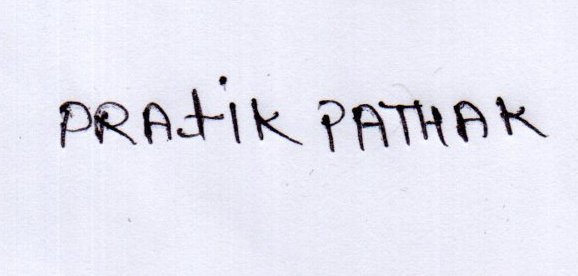 PRAtiK PATHAK